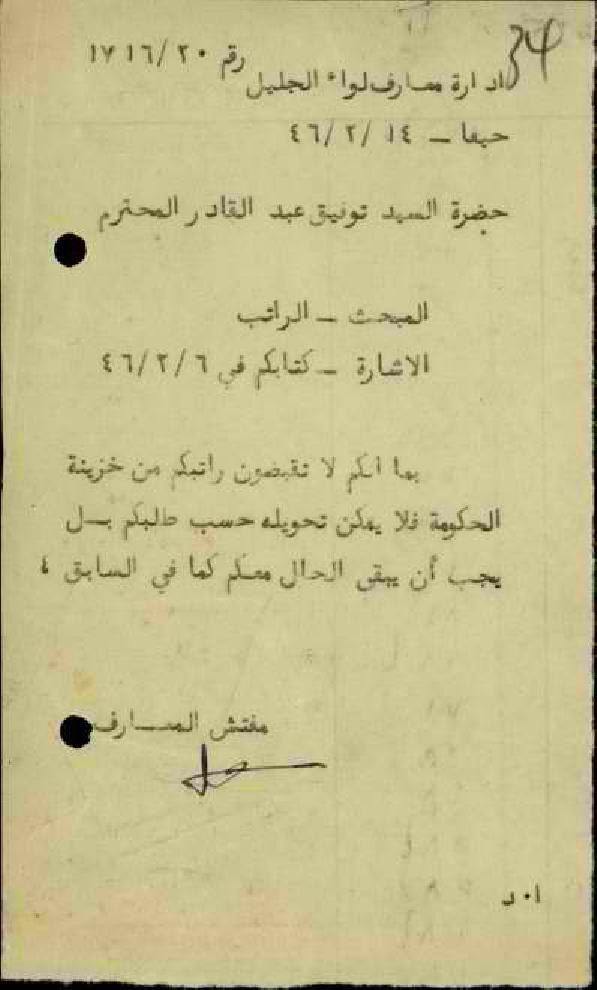 34
رقم ١٧١٦/٢٠
ادارة معارف لواء الجليل
حيفا ـ ٤٦/٢/١٤
حضرة السيد توفيق عبد القادر المحترم
المبحث ـ الراتب
الاشارة ـ كتابكم في ٤٦/٢/٦
بما انكم لا تقبضون راتبكم من خزينة
الحكومة فلا يمكن تحويله حسب طلبكم بــل
يجب أن يبقى الحال معكم كما في السابق ،
مفتش المعـــارف
ا۰د